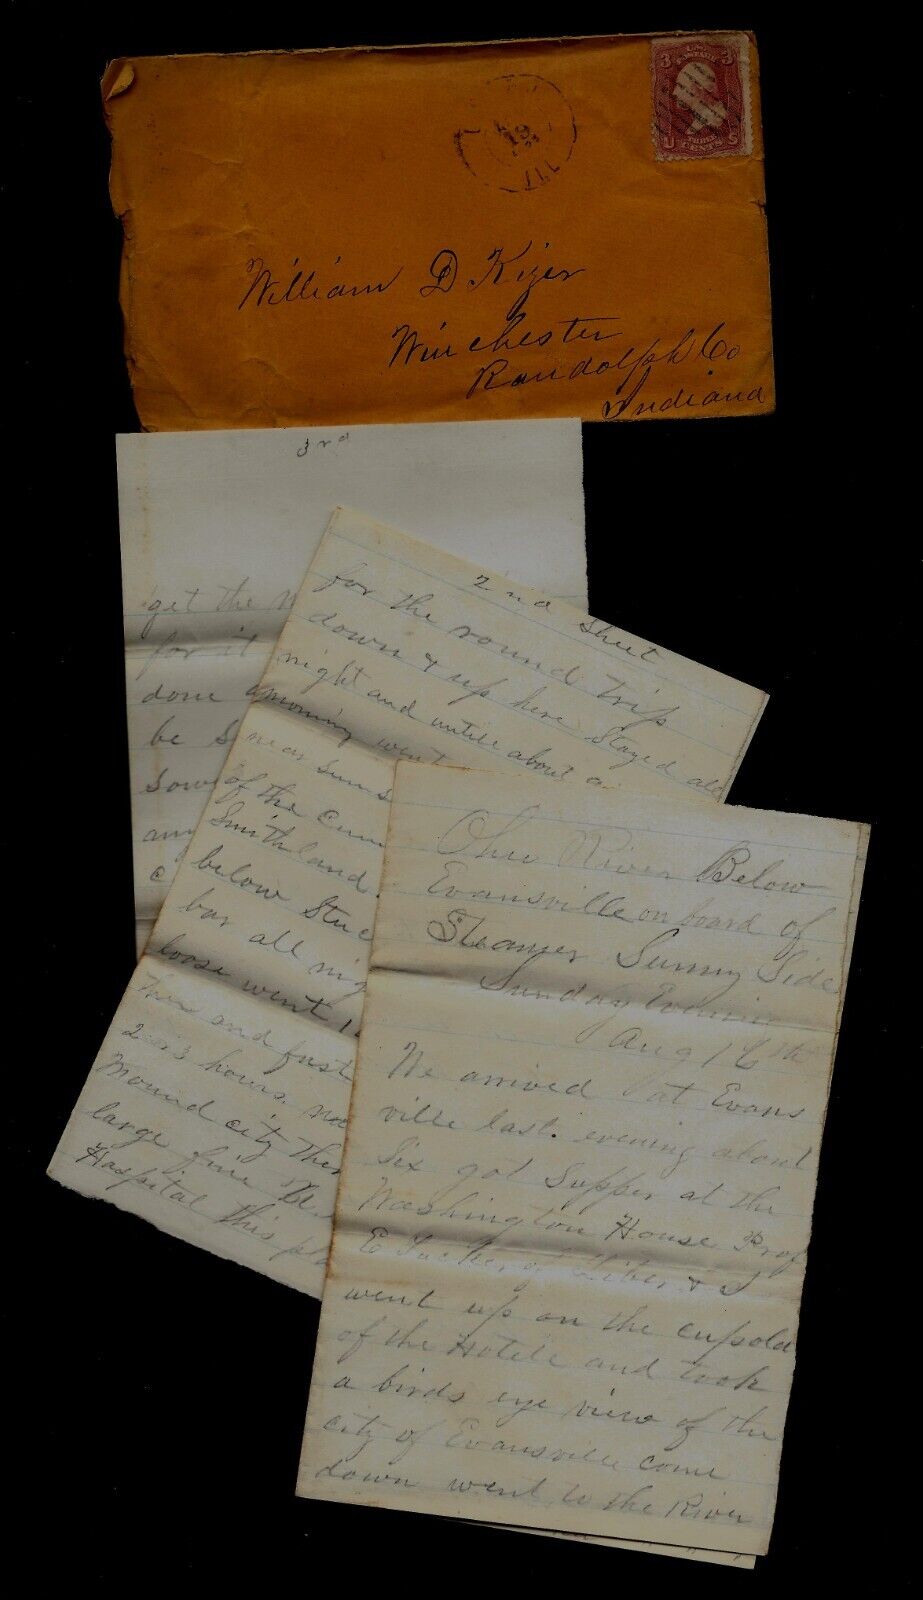 U.S. POSTAGE
3 3
U THREE CENTS S
19
ILL
William D Kizer
Winchester
Randolph Co
Indiana
3rd
get the
for it
done
be
Sow
any
c
2nd Sheet
for the round trip
down & up here Stayed all
night and untill about
morning went
near Suns
of the Cum
Smithland
below Stuc
bar all nig
loose went
ther and
2 or 3 hours. not
Mound city ther
large fine
Hospital this pla
Ohio River Below
Evansville on board of
Steamer Sunny Side
Sunday Evening
Aug 16th
We arrived at Evans
ville last evening about
Six got Supper at the
Washington House
& I
went up on the cupola
of the Hotell and took
a birds eye view of the
city of Evansville come
down went to the River